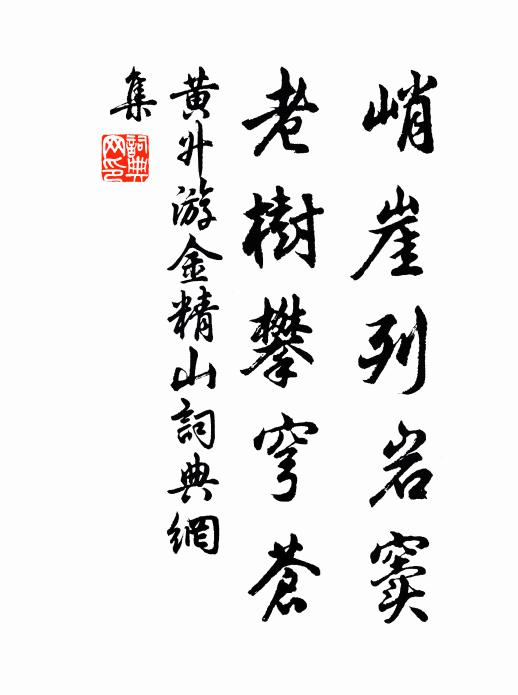 峭崖列岩竇
老樹攀穹蒼
黄升游金精山詞典網
集
詞典網印